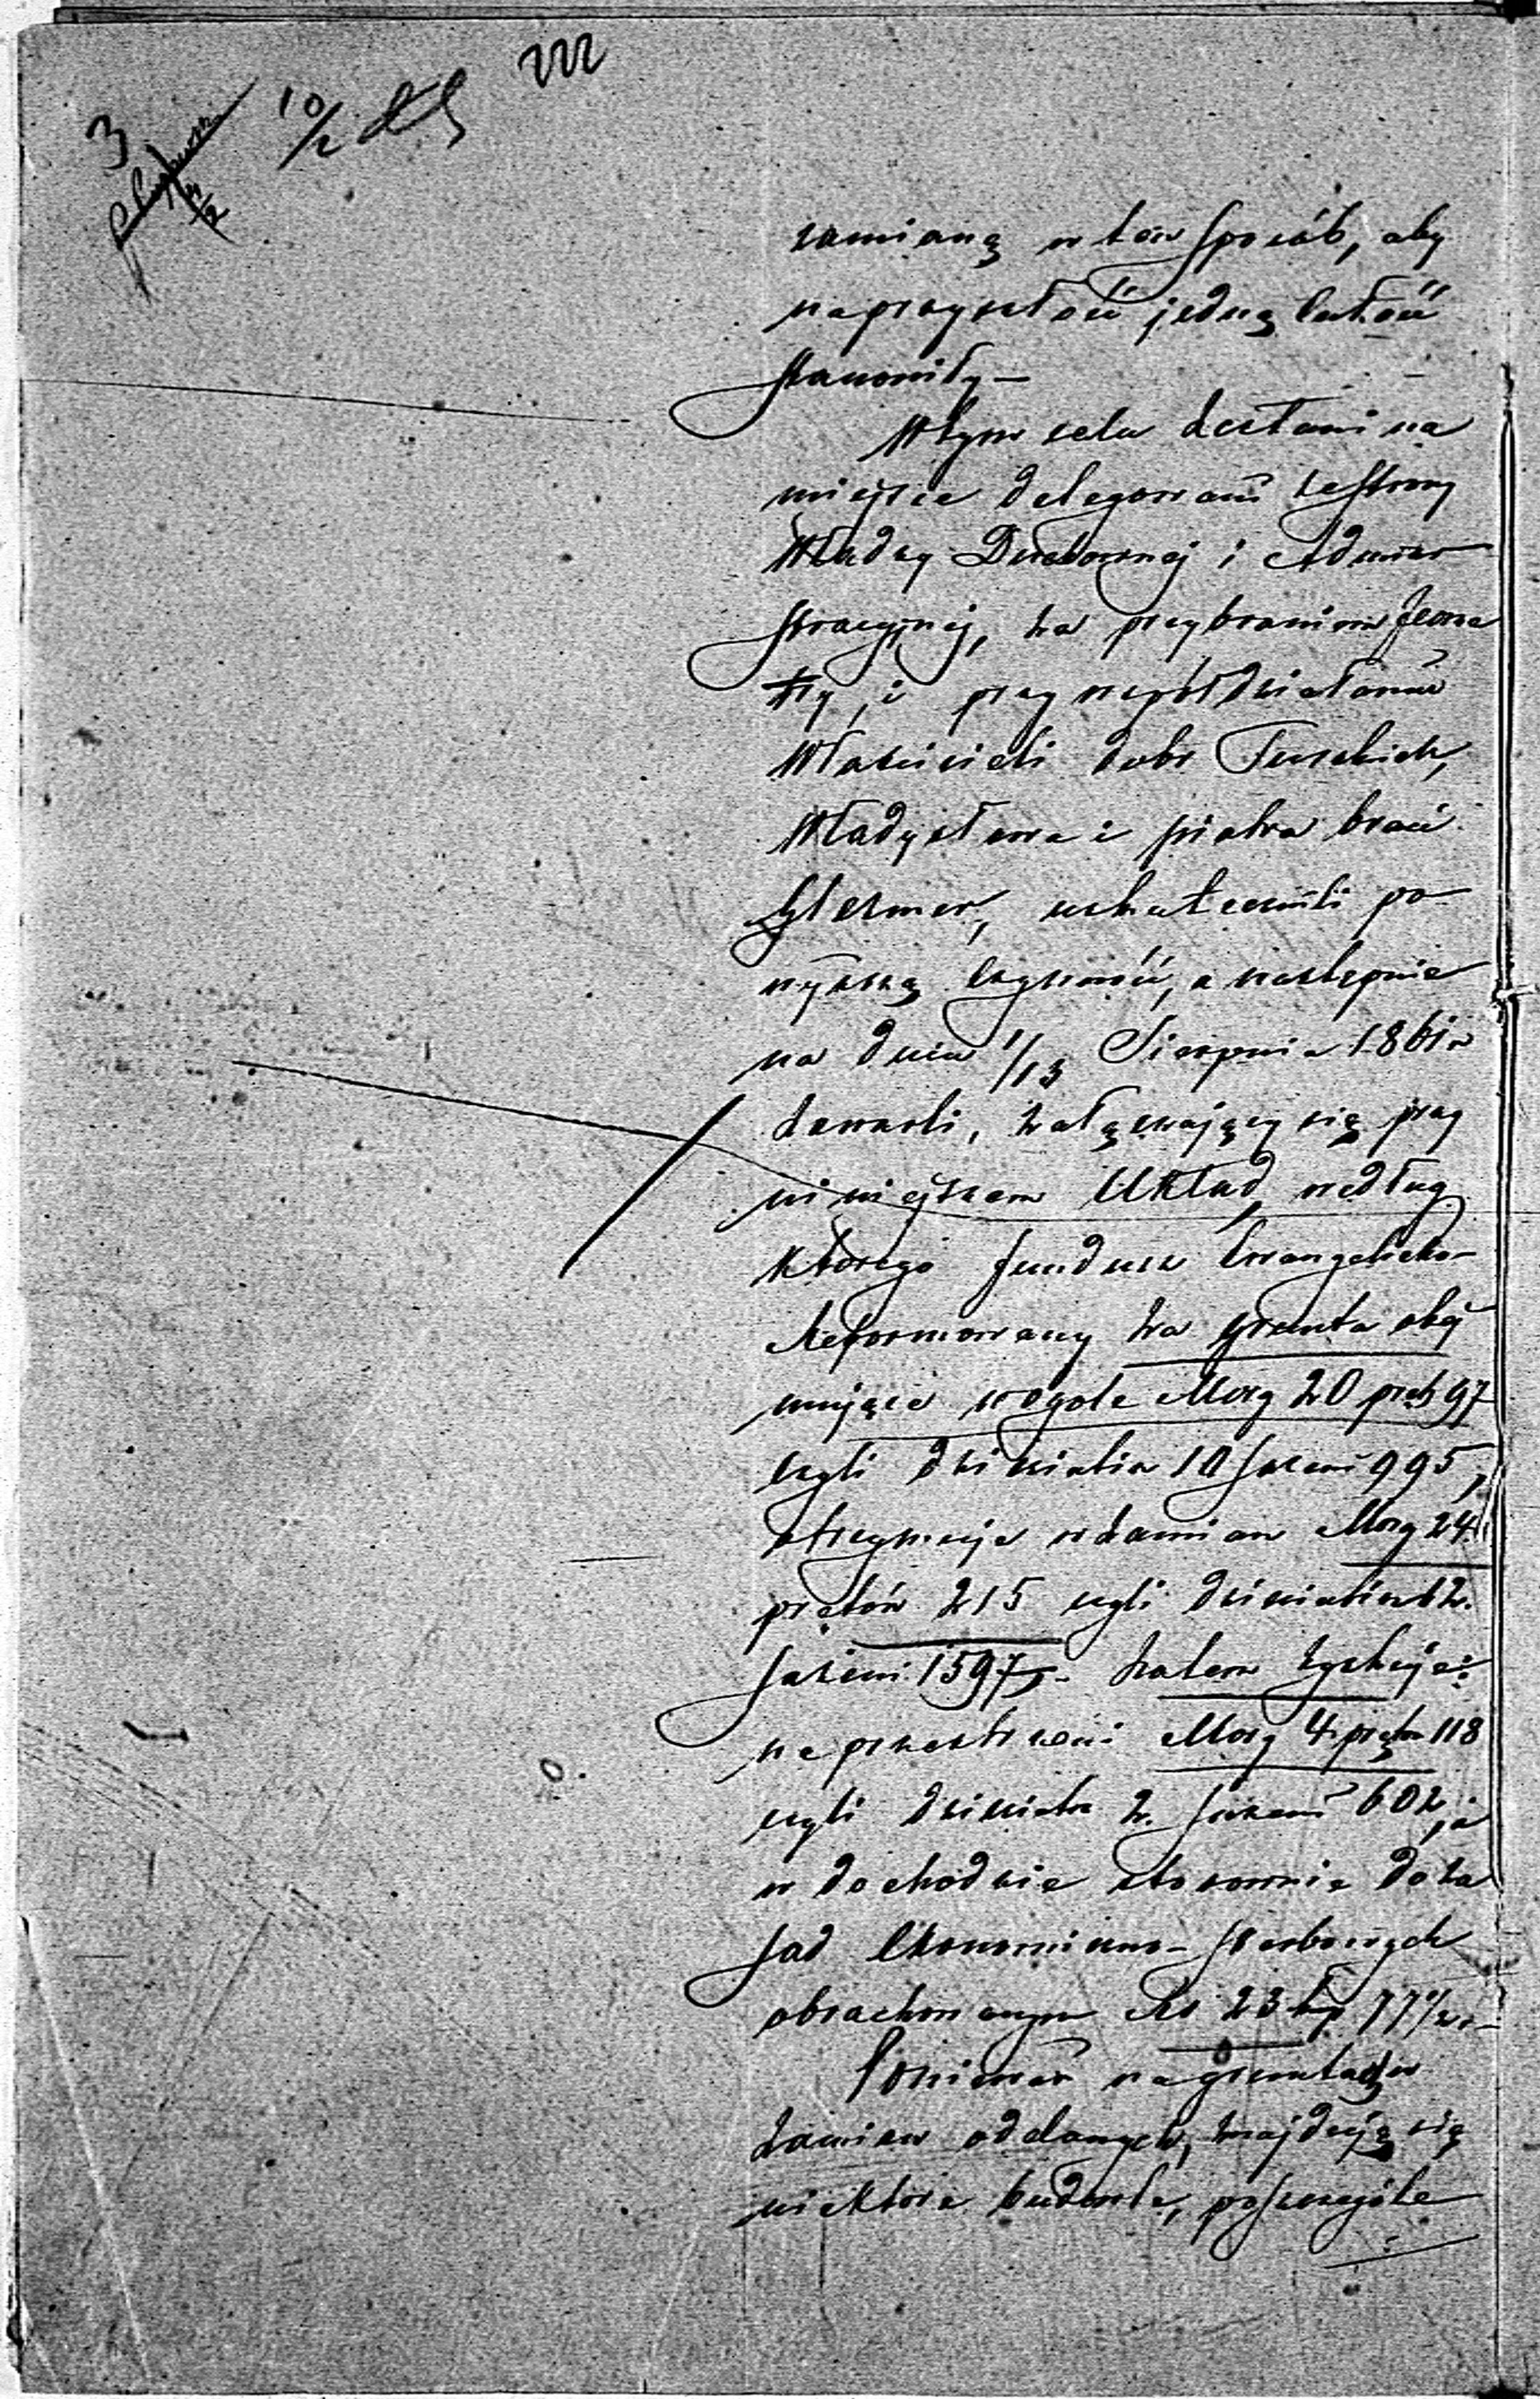 3
10/2
zamianą w ten sposób, aby
na przyszłość jedną całość
stanowiły —
W tym celu zesłani na
miejsce delegowani ze strony
Władzy Duchownej i Admini
stracyjnej, za przybraniem Jeome
try, i przy współdziałaniu
Właścicieli dobr Turskich,
Władysława i Piotra braci
uskutecznili po
wyższą czynność, a następnie
na dniu 1/13 Sierpnia 1861 r
zawarli, załączający się przy
niniejszem Układ, według
którego fundusz Ewangelicko-
Reformowany za grunta obej
mujące w ogóle Morg 20 pręt 97
czyli dziesiatin 10 sażeni 995,
otrzymuje w zamian Morg 24
prętów 215 czyli dziesiatin 12.
sażeni 1597. — Zatem zyskuje:
na przestrzeni Morg 4 pręt 118
czyli dziesiatin 2. sażeni 602, a
w dochodzie stosownie do za
sad Ekonomiczno-skarbowych
obrachowanym Rs 23 kp 77 1/2. —
Ponieważ na gruntach w
zamian oddanych, znajdują się
niektóre budowle, poszczególe